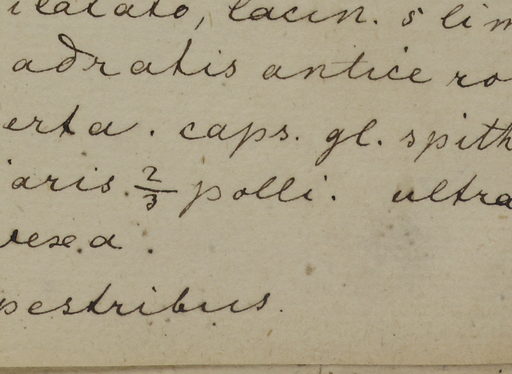 ilatato, lacin. 5 lim
adratis antice ro
erta. caps. gl. spith
aris 2/3 polli. ultra
vexa.
pestribus.